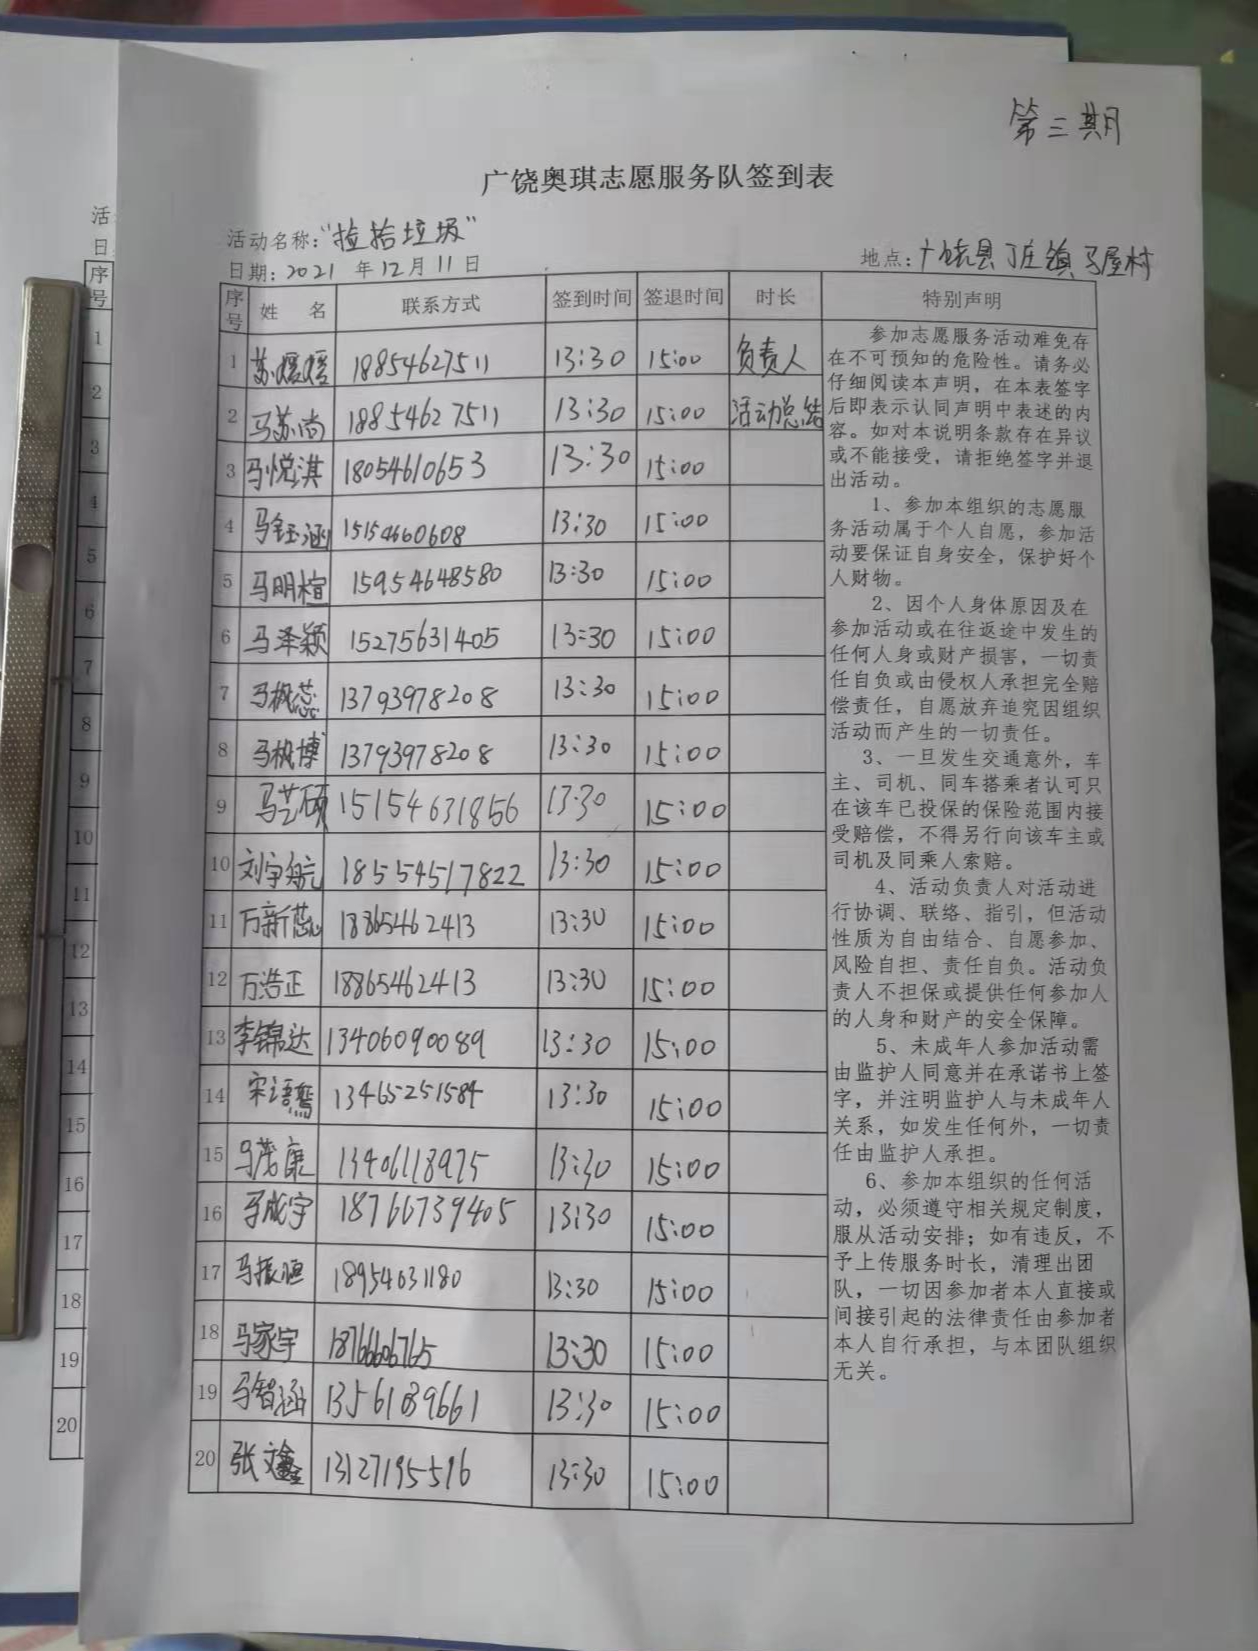 第三期
广饶奥琪志愿服务队签到表
活动名称：“捡拾垃圾”
日期：2021 年 12 月 11 日
地点：广饶县丁庄镇马屋村
序号 姓 名 联系方式 签到时间 签退时间 时长 特别声明
1 苏媛媛 18854627511 13:30 15:00 负责人
2 马苏尚 18854627511 13:30 15:00 活动总结
3 马悦淇 18054610653 13:30 15:00
4 马钰涵 15154660608 13:30 15:00
5 马明楦 15954648580 13:30 15:00
6 马泽颖 15275631405 13:30 15:00
7 马枫蕊 13793978208 13:30 15:00
8 马枫博 13793978208 13:30 15:00
9 马艺硕 15154631856 13:30 15:00
10 刘宇航 18554517822 13:30 15:00
11 万新蕊 18865462413 13:30 15:00
12 万浩正 18865462413 13:30 15:00
13 李锦达 13406090089 13:30 15:00
14 宋语嫣 13465251584 13:30 15:00
15 马茂康 13406118975 13:30 15:00
16 马成宇 18766739405 13:30 15:00
17 马振恒 18954631180 13:30 15:00
18 马家宇 18766606765 13:30 15:00
19 马智涵 13561089661 13:30 15:00
20 张文鑫 13127195516 13:30 15:00
参加志愿服务活动难免存
在不可预知的危险性。请务必
仔细阅读本声明，在本表签字
后即表示认同声明中表述的内
容。如对本说明条款存在异议
或不能接受，请拒绝签字并退
出活动。
1、参加本组织的志愿服
务活动属于个人自愿，参加活
动要保证自身安全，保护好个
人财物。
2、因个人身体原因及在
参加活动或在往返途中发生的
任何人身或财产损害，一切责
任自负或由侵权人承担完全赔
偿责任，自愿放弃追究因组织
活动而产生的一切责任。
3、一旦发生交通意外，车
主、司机、同车搭乘者认可只
在该车已投保的保险范围内接
受赔偿，不得另行向该车主或
司机及同乘人索赔。
4、活动负责人对活动进
行协调、联络、指引，但活动
性质为自由结合、自愿参加、
风险自担、责任自负。活动负
责人不担保或提供任何参加人
的人身和财产的安全保障。
5、未成年人参加活动需
由监护人同意并在承诺书上签
字，并注明监护人与未成年人
关系，如发生任何外，一切责
任由监护人承担。
6、参加本组织的任何活
动，必须遵守相关规定制度，
服从活动安排；如有违反，不
予上传服务时长，清理出团
队，一切因参加者本人直接或
间接引起的法律责任由参加者
本人自行承担，与本团队组织
无关。
活
日
序号
1
2
3
4
5
6
7
8
9
10
11
12
13
14
15
16
17
18
19
20